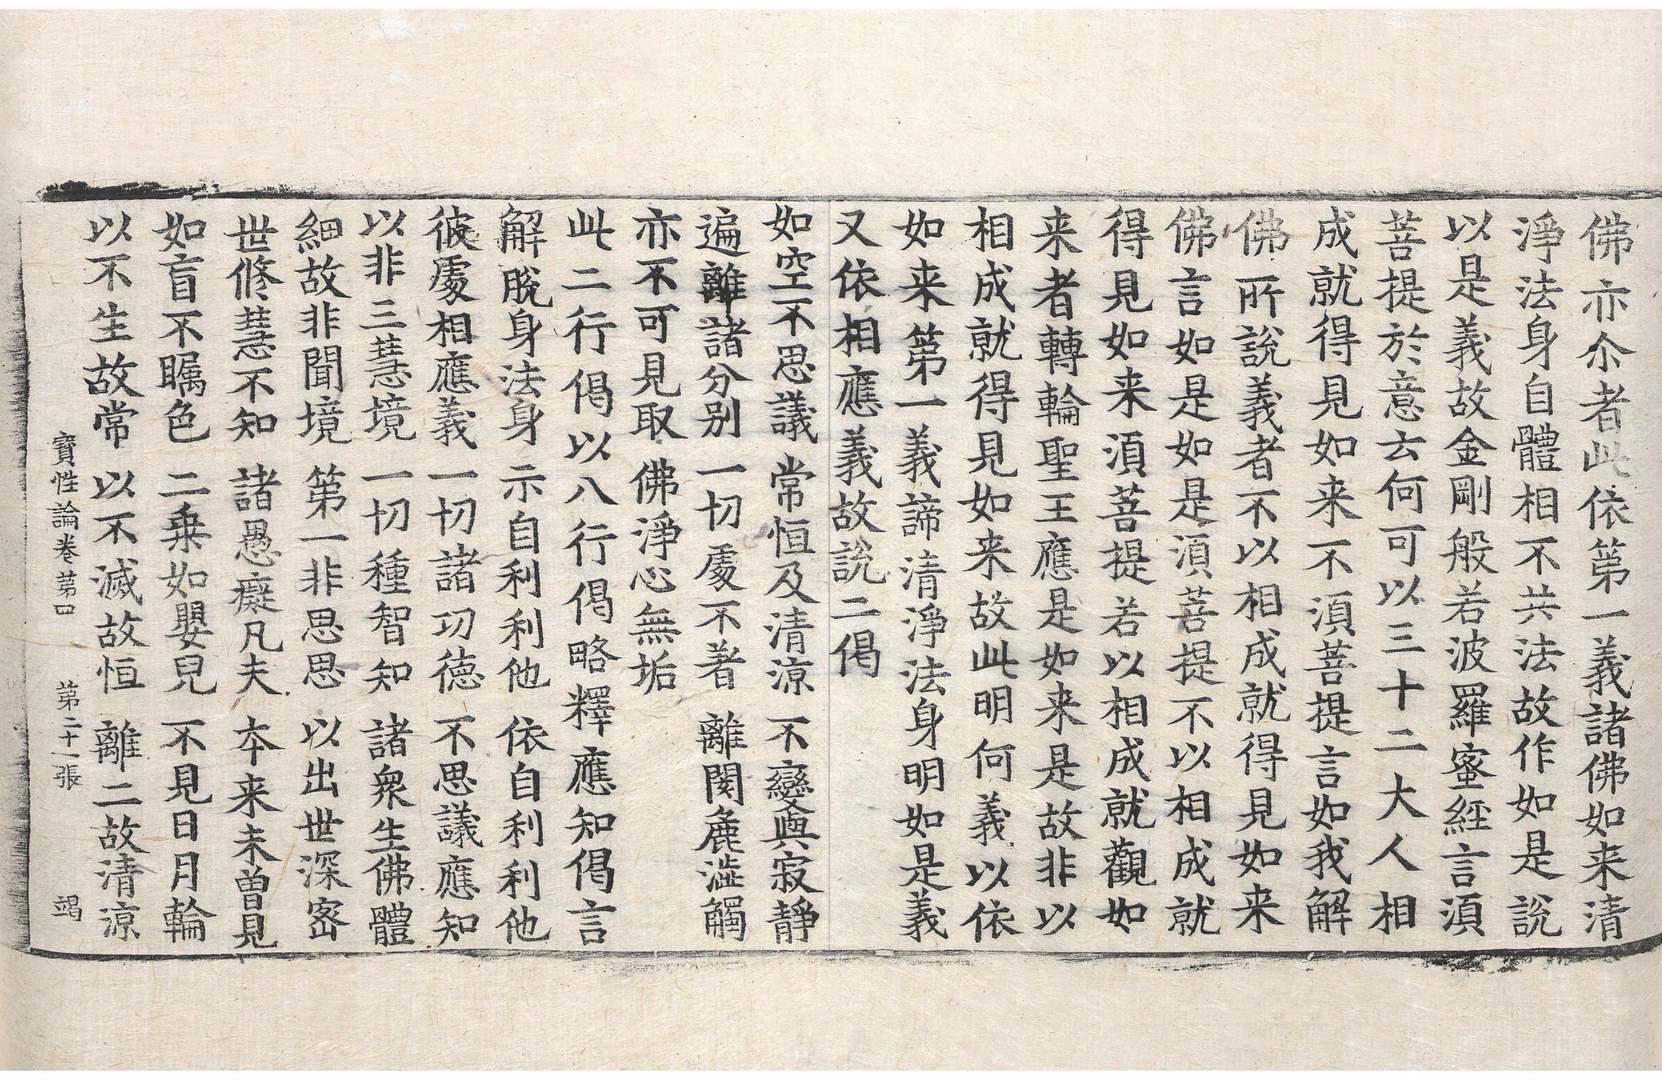 佛亦尒者此依第一義諸佛如来清
淨法身自體相不共法故作如是說
以是義故金剛般若波羅蜜經言湏
菩提於意云何可以三十二大人相
成就得見如来不湏菩提言如我解
佛所說義者不以相成就得見如来
佛言如是如是湏菩提不以相成就
得見如来湏菩提若以相成就觀如
来者轉輪聖王應是如来是故非以
相成就得見如来故此明何義以依
如来第一義諦清淨法身明如是義
又依相應義故說二偈
如空不思議 常恒及清涼 不變與寂靜
遍離諸分別 一切處不著 離閡麁澁觸
亦不可見取 佛淨心無垢
此二行偈以八行偈略釋應知偈言
解脫身法身 示自利利他 依自利利他
彼處相應義 一切諸功德 不思議應知
以非三慧境 一切種智知 諸衆生佛體
細故非聞境 第一非思思 以出世深宻
世修慧不知 諸愚癡凡夫 本来未曽見
如盲不矚色 二乗如嬰兒 不見日月輪
以不生故常 以不滅故恒 離二故清涼
寶性論卷第四 第二十一張 竭